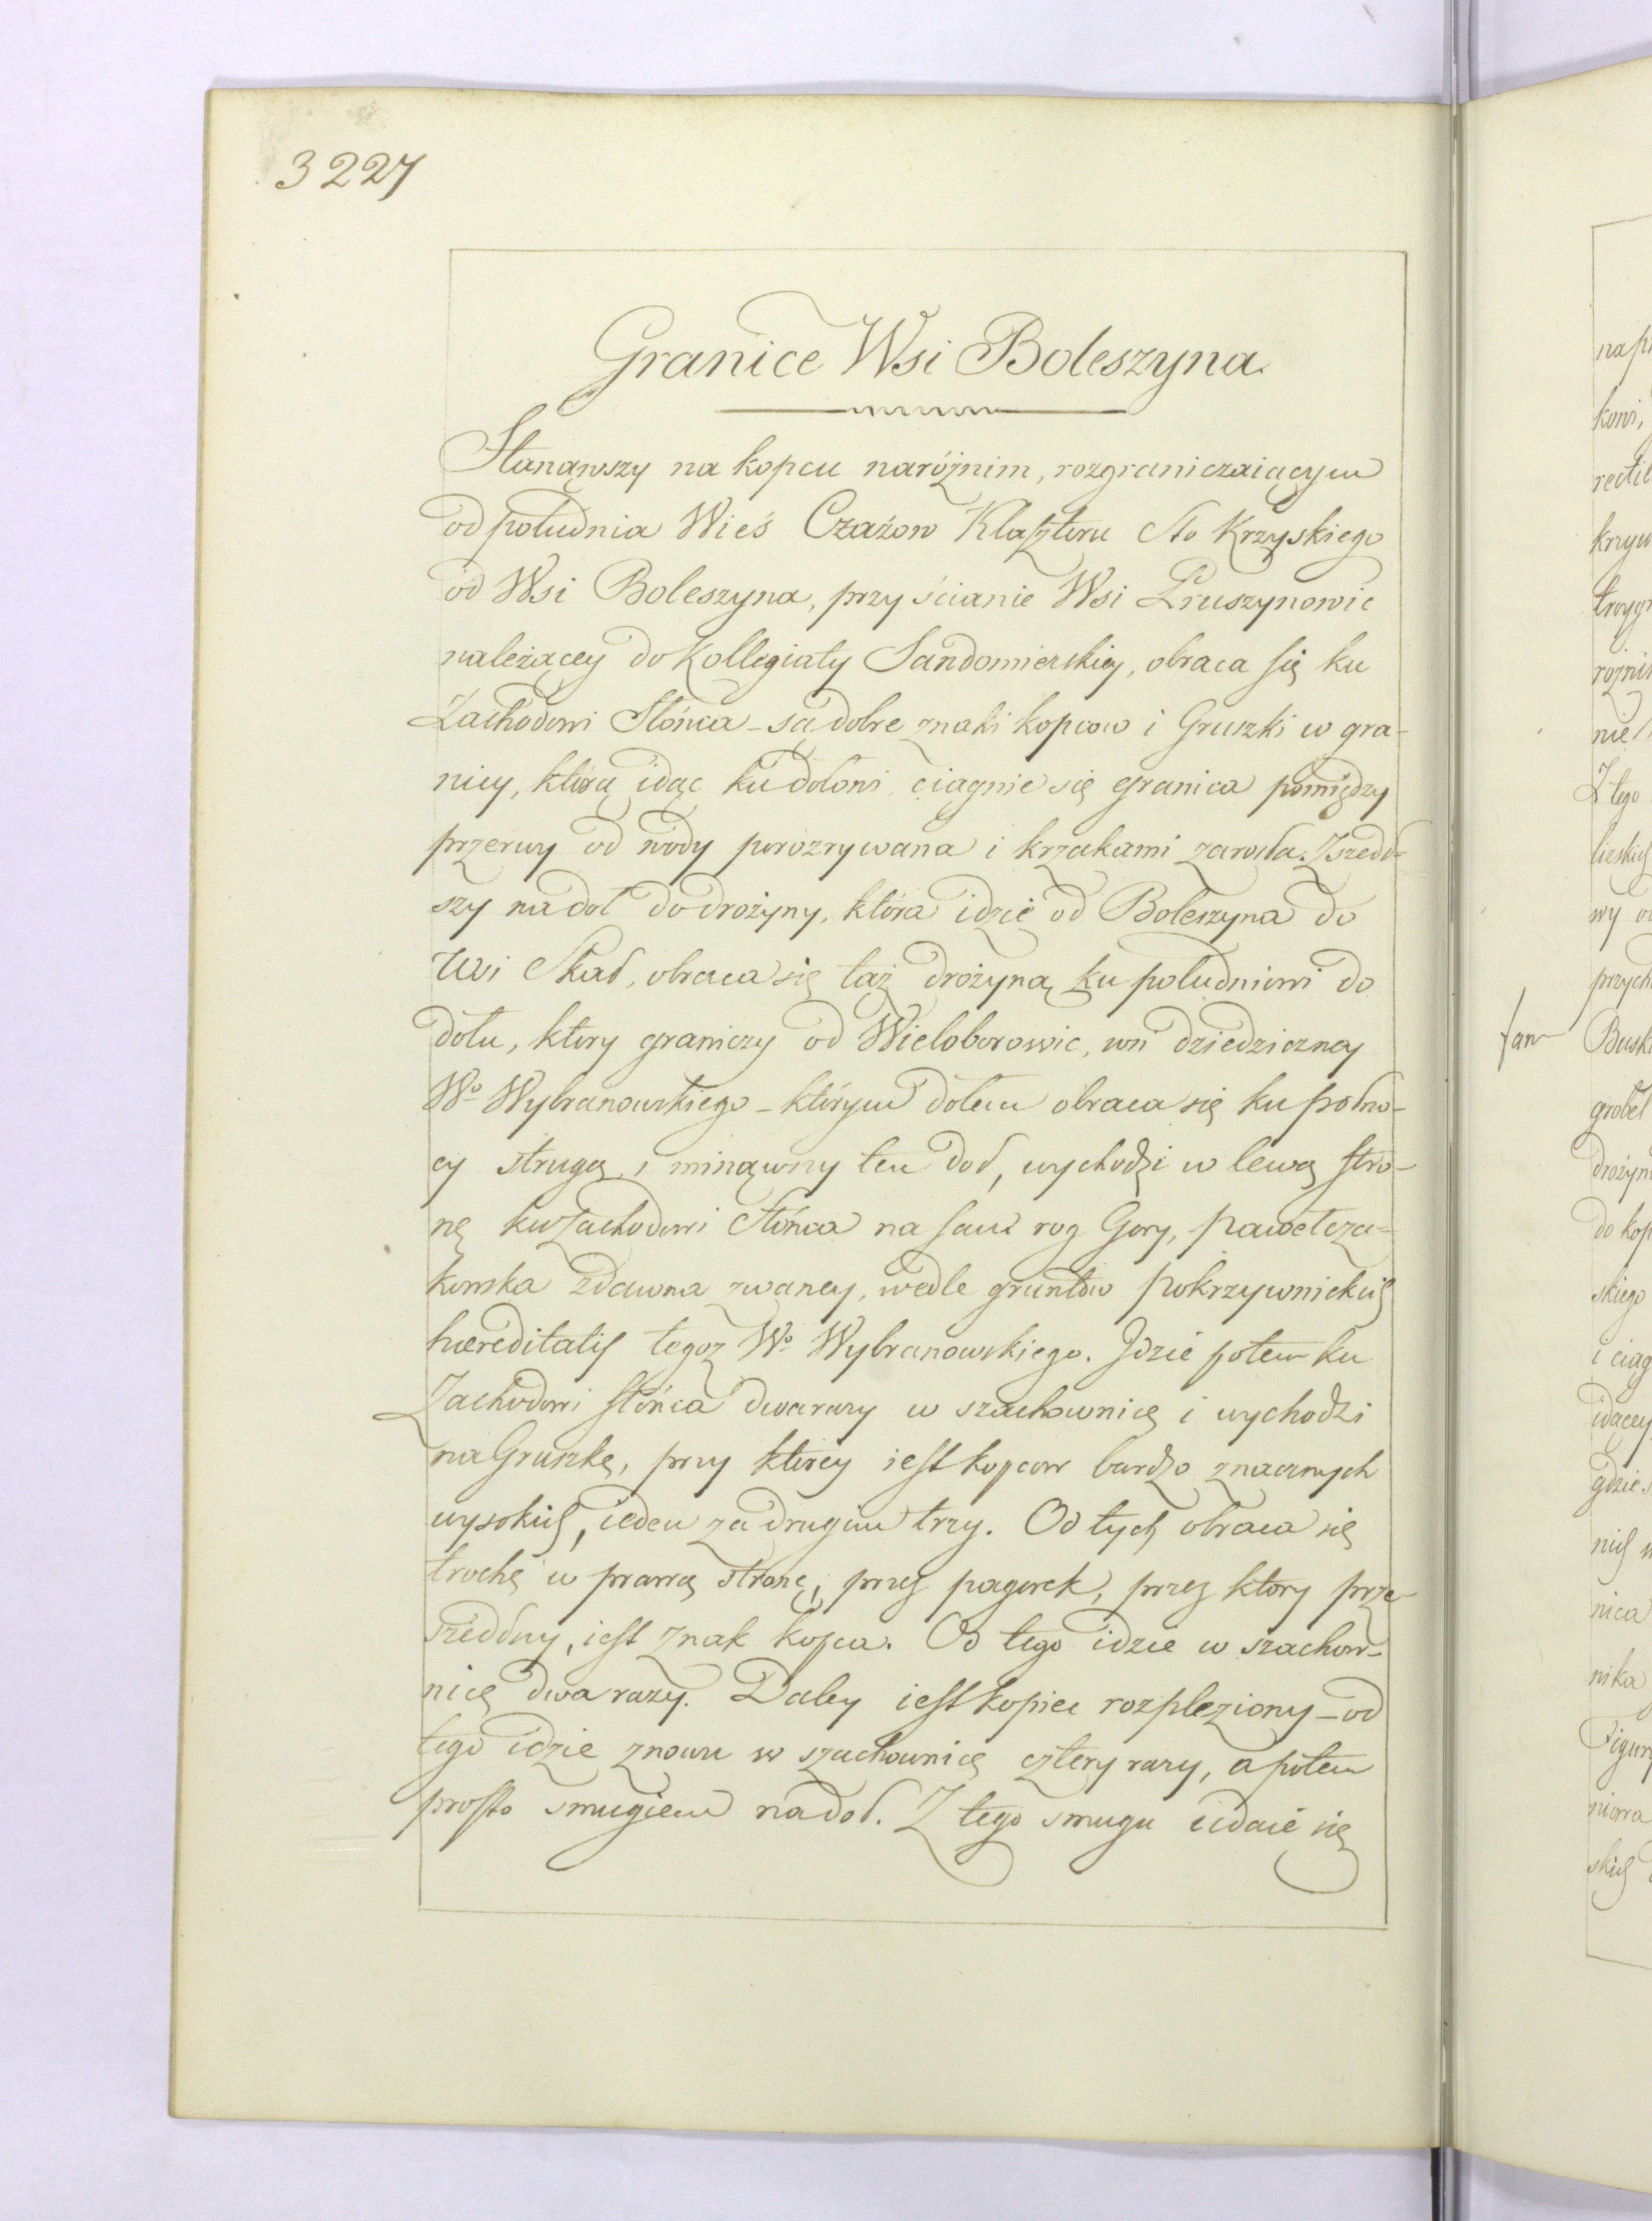 3227
Granice Wsi Boleszyna
Stanąwszy na kopcu narójnim, rozgraniczaiącym
od południa Wieś Czażow Klasztoru Sto Krzyskiego
od Wsi Boleszyna, przy ścianie Wsi Pruszynowic
należącey do Kollegiaty Sandomierskiey, obraca się ku
Zachodowi Słońca - są dobre znaki kopcow i Gruszki w gra-
nicy, którą idąc ku dołowi ciągnie się granica pomiędzy
przerwy od wody porozrywana i krzakami zarosła. Zszedł-
szy na doł do drożyny, która idzie od Boleszyna do
Wsi Skał, obraca się taż drożyną ku południowi do
dołu, ktory graniczy od Wieloborowic, wsi dziedziczney
Wo Wybranowskiego - którym dołem obraca się ku połno-
cy strugą, i minąwszy ten doł, wychodzi w lewą stro-
nę ku Zachodowi Słońca na sam rog Gory, Pawełcza-
kowska zdawna zwaney, wedle gruntow Pokrzywnickich
haereditatis tegoz Wo Wybranowskiego. Jdzie potem ku
Zachodowi słońca dwa razy w szachownicę i wychodzi
na Gruszkę, przy ktorey iest kopcow bardzo znacznych
wysokich, ieden za drugim trzy. Od tych obraca się
trochę w prawą stronę, przez pagorek, przez ktory prze-
szedłszy, iest znak kopca. Od tego idzie w szachow-
nicę dwa razy. Daley iest kopiec rozpleziony - od
tego idzie znowu w szachownicę cztery razy, a potem
prosto smugiem na doł. Z tego smugu udaie się
nap
kowi,
troyg
nie
Z tego
wy o
przych
Busk
grobel
drożyn
do kop
skiego
i ciąg
idącey
gdzie
nich
nica
nika
Figur
skich